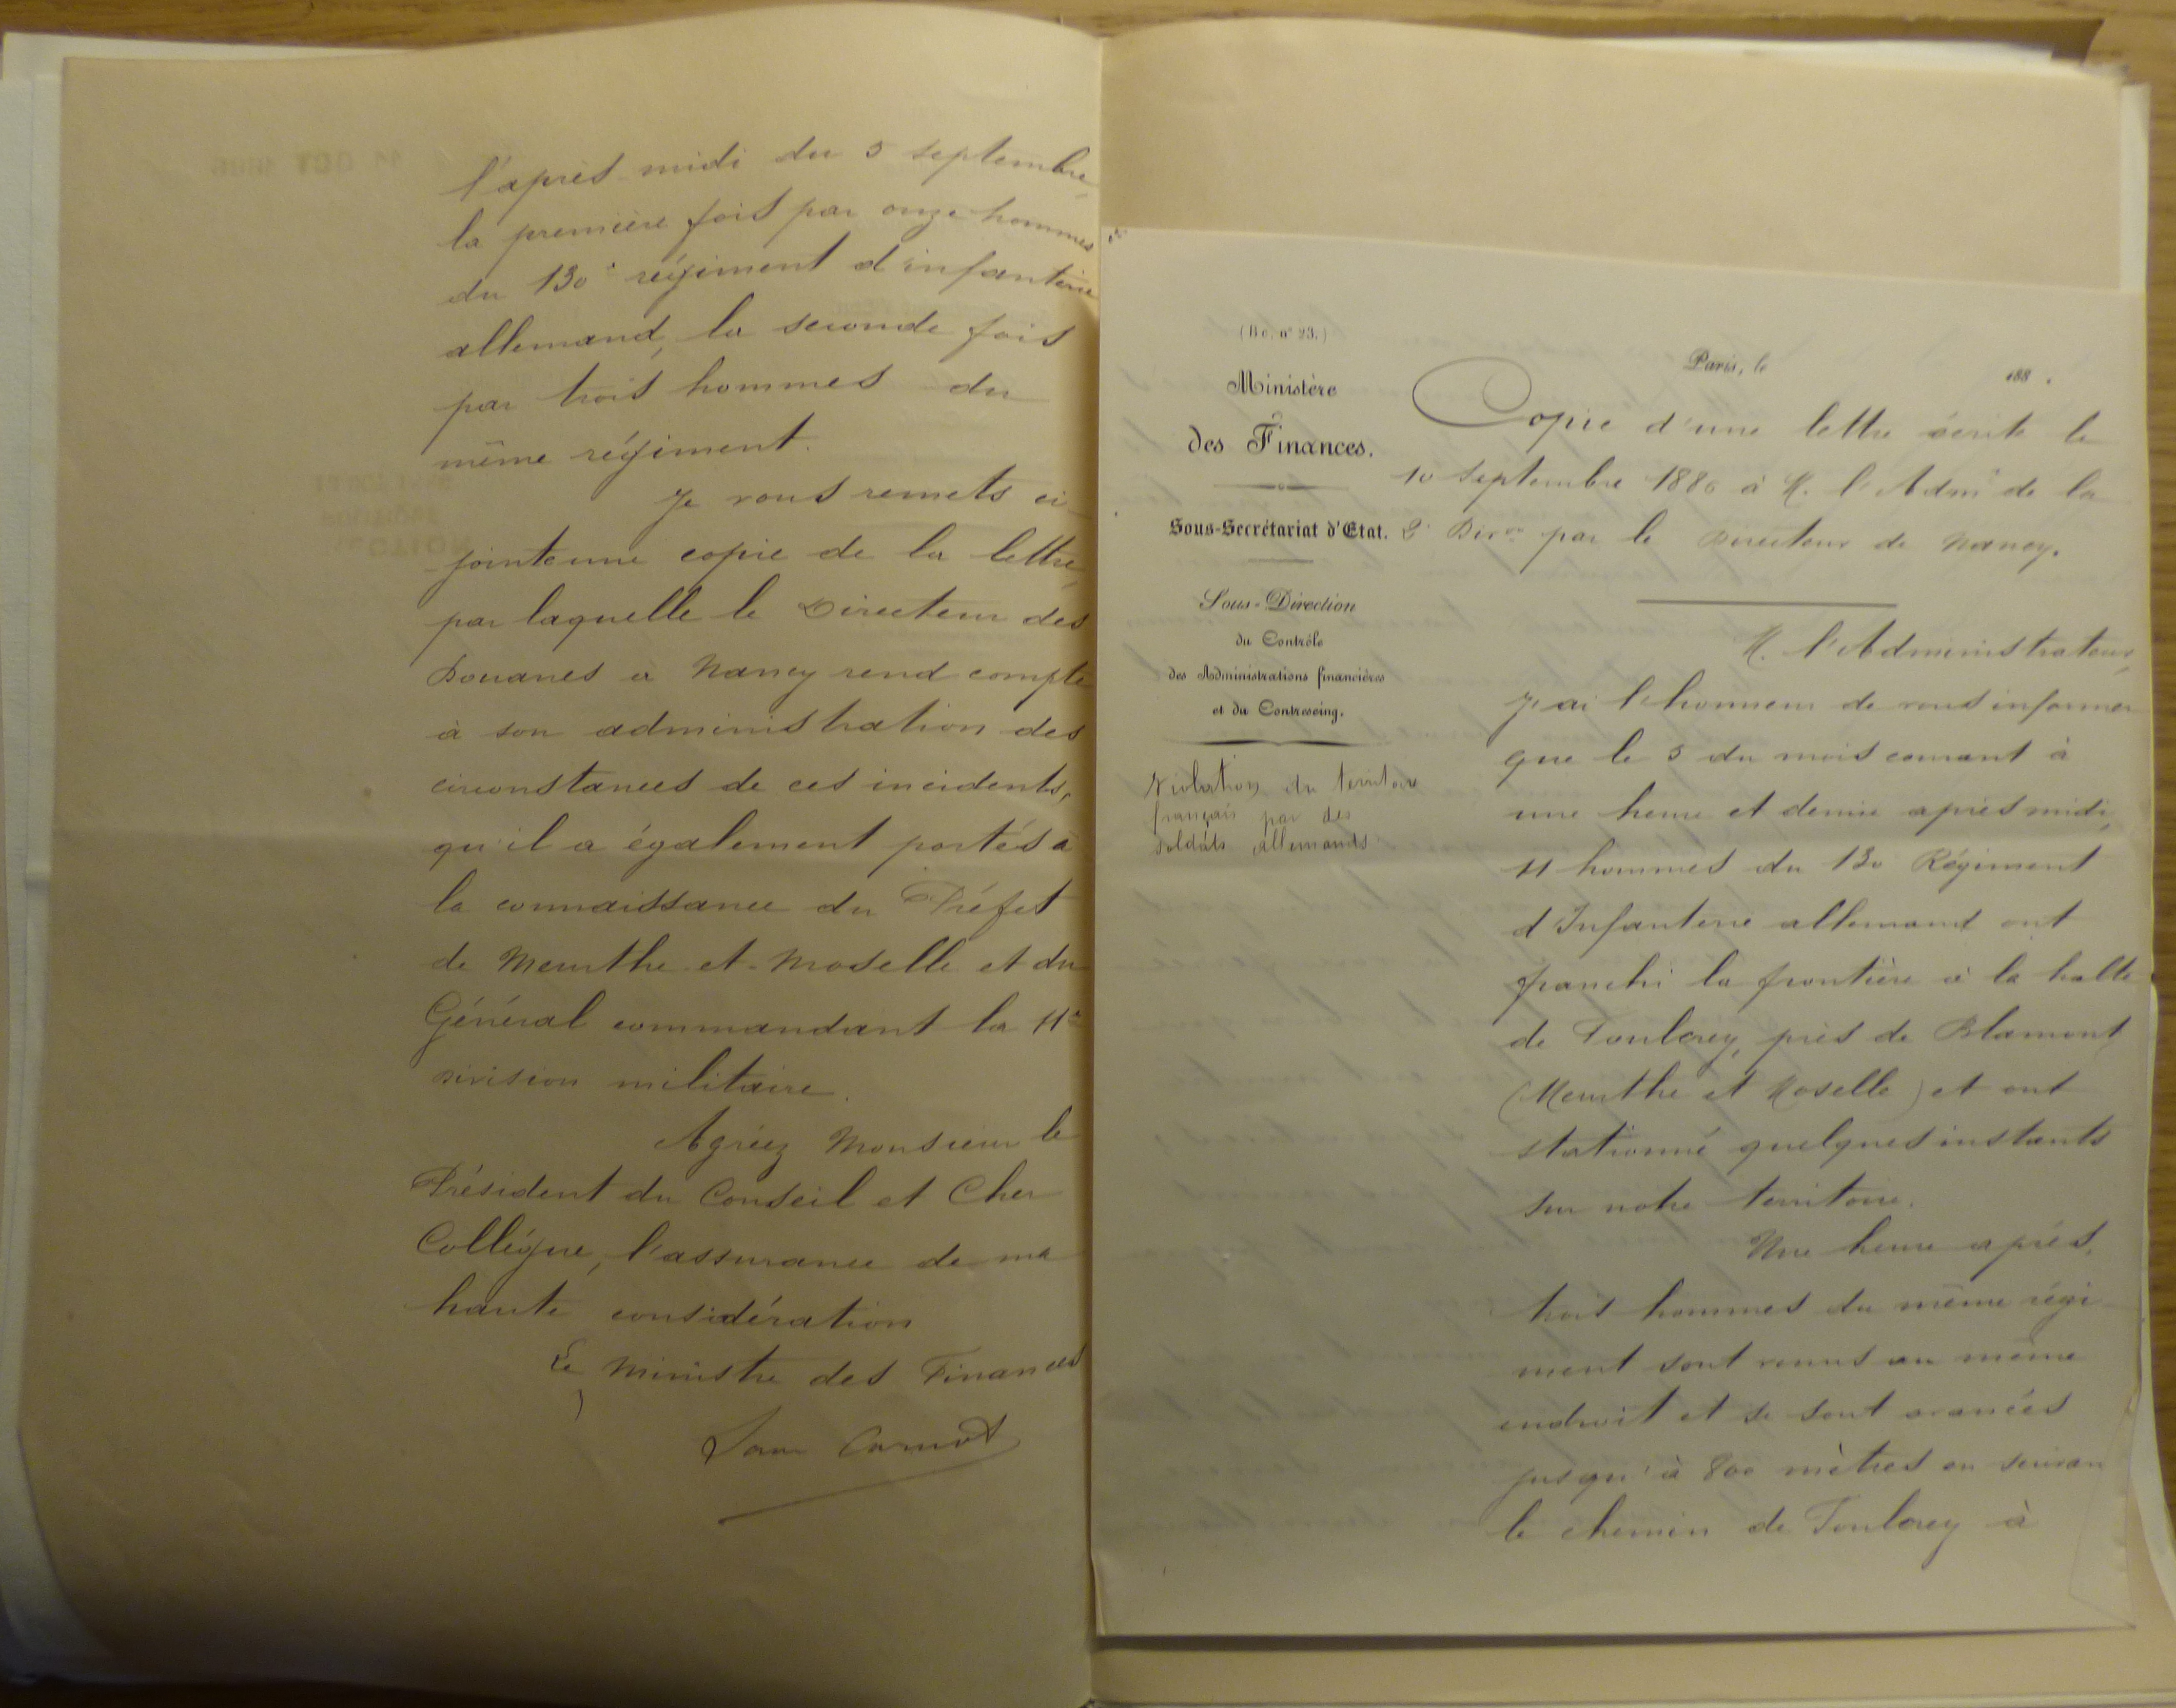 l'après-midi du 5 septembre,
la première fois par onze hommes
du 130e régiment d'infanterie
allemand, la seconde fois
par trois hommes du
même régiment.
Je vous remets ci-
jointe une copie de la lettre,
par laquelle le Directeur des
Douanes à Nancy rend compte
à son administration des
circonstances de ces incidents,
qu'il a également portés à
la connaissance du Préfet
de Meurthe-et-Moselle et du
Général commandant la 11e
division militaire.
Agréez Monsieur le
Président du Conseil et Cher
Collègue, l'assurance de ma
haute considération
Le Ministre des Finances
Sadi Carnot
(Bo. n° 23.)
Ministère
des Finances.
Sous-Secrétariat d'Etat.
Sous-Direction
du Contrôle
des Administrations financières
et du Contreseing.
Violation du territoire
français par des
soldats allemands
Paris, le 188 .
Copie d'une lettre écrite le
10 septembre 1886 à M. l'Admr de la
2e Divon par le Directeur de Nancy.
M. l'Administrateur,
J'ai l'honneur de vous informer
que le 5 du mois courant à
une heure et demie après midi,
11 hommes du 130 Régiment
d'Infanterie allemand ont
franchi la frontière à la halte
de Foulcrey, près de Blamont
(Meurthe et Moselle) et ont
stationné quelques instants
sur notre territoire.
Une heure après,
trois hommes du même régi-
ment sont venus au même
endroit et se sont avancés
jusqu'à 800 mètres en suivan
le chemin de Foulcrey à